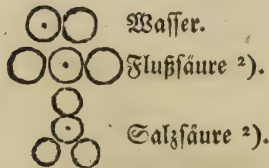 Waſſer.
Flußſäure ²).
Salzſäure ²).